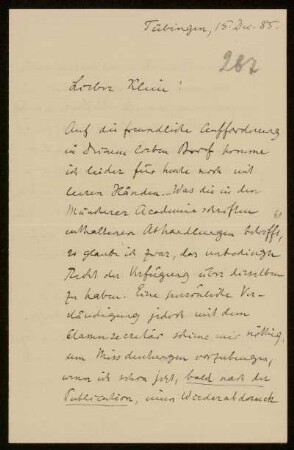 Tübingen, 15. Dec. 85.
267
Lieber Klein!
Auf die freundliche Aufforderung
in Deinem letzten Brief komme
ich leider für heute noch mit
leeren Händen. Was die in den
Münchener Academieschriften
enthaltenen Abhandlungen betrifft,
so glaube ich zwar, das unbedingte
Recht der Verfügung über dieselben
zu haben. Eine persönliche Ver-
ständigung jedoch mit dem
Classensecretär schiene mir nöthig,
um Missdeutungen vorzubeugen,
wenn ich schon jetzt, bald nach der
Publication, einen Wiederabdruck